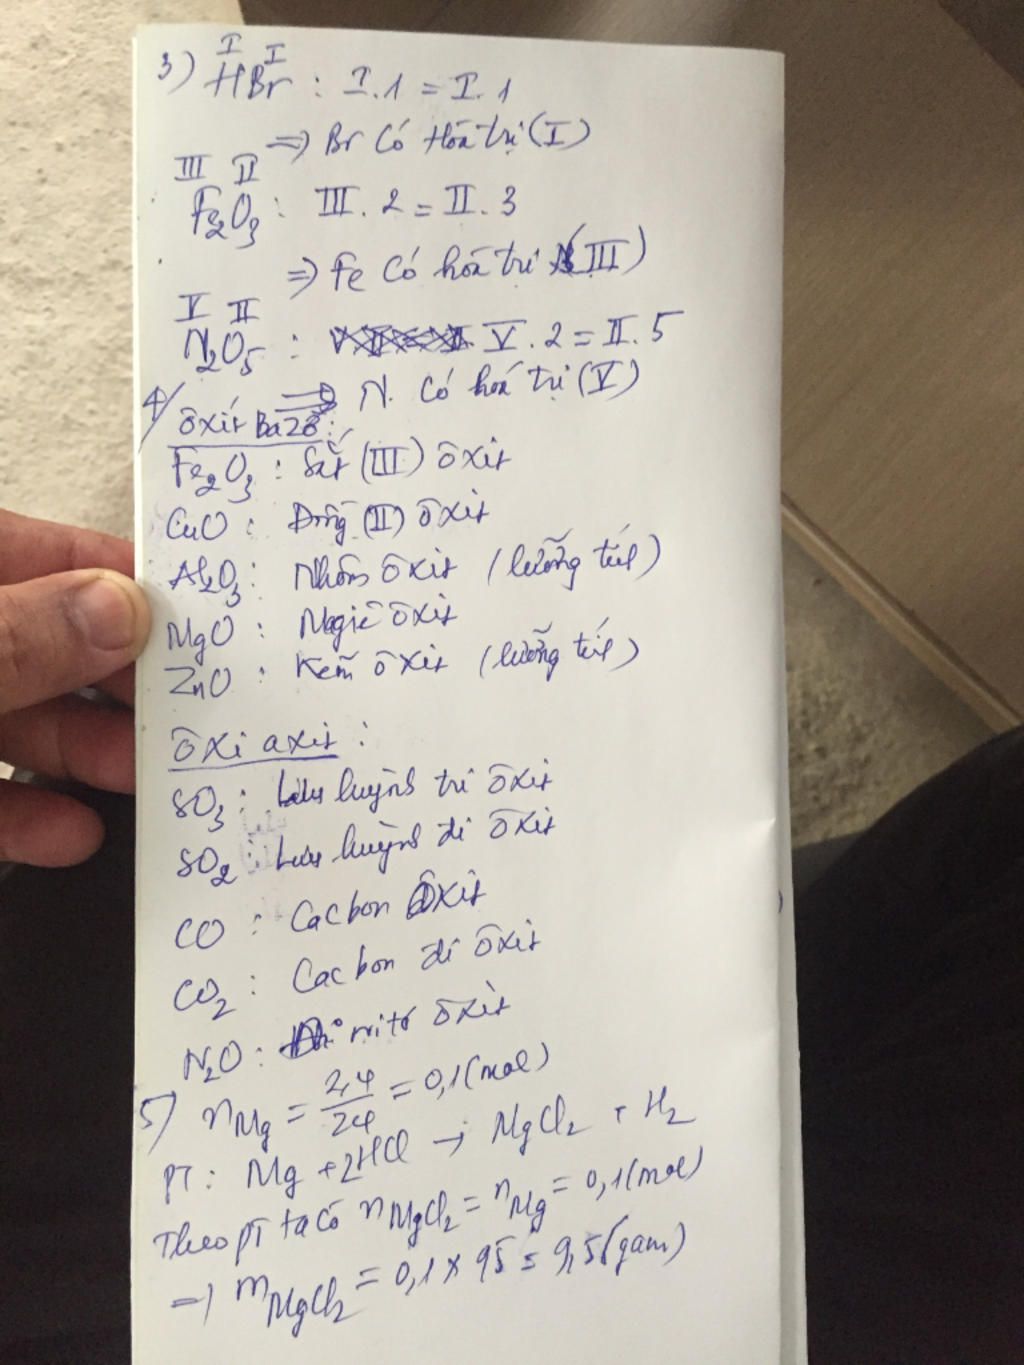 I I
3) HBr : I.1 = I.1
=> Br Có Hóa trị (I)
III II
Fe2O3 : III. 2 = II. 3
=> Fe Có hóa trị (III)
V II
N2O5 : V. 2 = II. 5
=> N. Có hóa trị (V)
4/ ôxit Bazơ :
Fe2O3 : Sắt (III) ôxit
CuO : Đồng (II) ôxit
Al2O3 : Nhôm ôxit (lưỡng tính)
MgO : Magiê ôxit
ZnO : Kẽm ôxit (lưỡng tính)
ôxi axit :
SO3 : Lưu huỳnh tri ôxit
SO2 : Lưu huỳnh đi ôxit
CO : Cacbon ôxit
CO2 : Cacbon đi ôxit
N2O : nitơ ôxit
5) nMg = 2,4/24 = 0,1 (mol)
PT : Mg + 2HCl → MgCl2 + H2
Theo pT ta có nMgCl2 = nMg = 0,1 (mol)
=> mMgCl2 = 0,1 x 95 = 9,5 (gam)